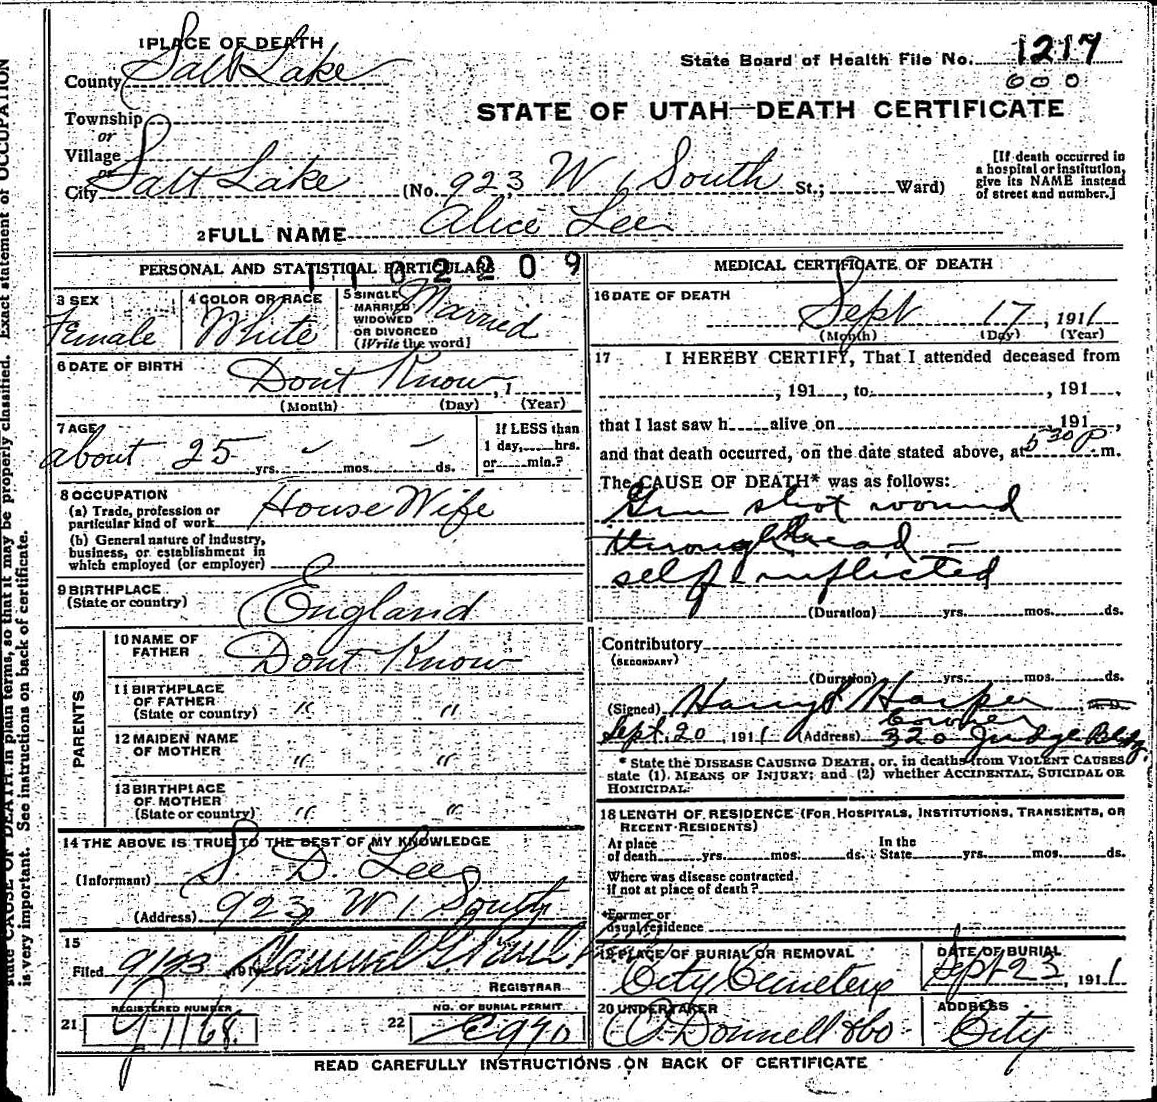 1 PLACE OF DEATH
County Salt Lake
State Board of Health File No. 1217
000
STATE OF UTAH—DEATH CERTIFICATE
Township
or
Village
or
City Salt Lake (No. 923 W 1 South St.; Ward)
[If death occurred in
a hospital or institution,
give its NAME instead
of street and number.]
2 FULL NAME Alice Lee
PERSONAL AND STATISTICAL PARTICULARS
1102209
3 SEX
Female
4 COLOR OR RACE
White
5 SINGLE
MARRIED
WIDOWED
OR DIVORCED
(Write the word)
Married
6 DATE OF BIRTH
Dont Know, 1
(Month) (Day) (Year)
7 AGE
about 25 yrs. mos. ds.
If LESS than
1 day, hrs.
or min.?
8 OCCUPATION
(a) Trade, profession or
particular kind of work House Wife
(b) General nature of industry,
business, or establishment in
which employed (or employer)
9 BIRTHPLACE
(State or country) England
PARENTS
10 NAME OF
FATHER Dont Know
11 BIRTHPLACE
OF FATHER
(State or country) " "
12 MAIDEN NAME
OF MOTHER " "
13 BIRTHPLACE
OF MOTHER
(State or country) " "
14 THE ABOVE IS TRUE TO THE BEST OF MY KNOWLEDGE
(Informant) S. D. Lee
(Address) 923 W 1 South
15
Filed 9/23 191 Samuel G. Paul
REGISTRAR
21 REGISTERED NUMBER
1168
22 NO. OF BURIAL PERMIT
E990
MEDICAL CERTIFICATE OF DEATH
16 DATE OF DEATH
Sept 17, 1911
(Month) (Day) (Year)
17 I HEREBY CERTIFY, That I attended deceased from
, 191 , to , 191 ,
that I last saw h alive on 191 ,
and that death occurred, on the date stated above, at 5 30 P m.
The CAUSE OF DEATH* was as follows:
Gun shot wound
through head —
self inflicted
(Duration) yrs. mos. ds.
Contributory
(SECONDARY)
(Duration) yrs. mos. ds.
(Signed) Harry S Harper
Coroner
Sept. 20, 1911 (Address) 320 Judge Bldg.
* State the DISEASE CAUSING DEATH, or, in deaths from VIOLENT CAUSES
state (1) MEANS OF INJURY; and (2) whether ACCIDENTAL, SUICIDAL OR
HOMICIDAL.
18 LENGTH OF RESIDENCE (FOR HOSPITALS, INSTITUTIONS, TRANSIENTS, OR
RECENT RESIDENTS)
At place
of death yrs. mos. ds.
In the
State yrs. mos. ds.
Where was disease contracted
if not at place of death?
Former or
usual residence
19 PLACE OF BURIAL OR REMOVAL
City Cemetery
DATE OF BURIAL
Sept 23, 1911
20 UNDERTAKER
O'Donnell & Co
ADDRESS
City
READ CAREFULLY INSTRUCTIONS ON BACK OF CERTIFICATE
state CAUSE OF DEATH in plain terms, so that it may be properly classified. Exact statement of OCCUPATION
is very important. See instructions on back of certificate.